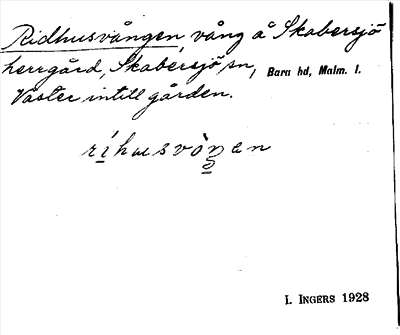 Ridhusvången, vång å Skabersjö
herrgård, Skabersjö sn, Bara hd, Malm. l.
Väster intill gården.
ríhusvòŋen
I. INGERS 1928